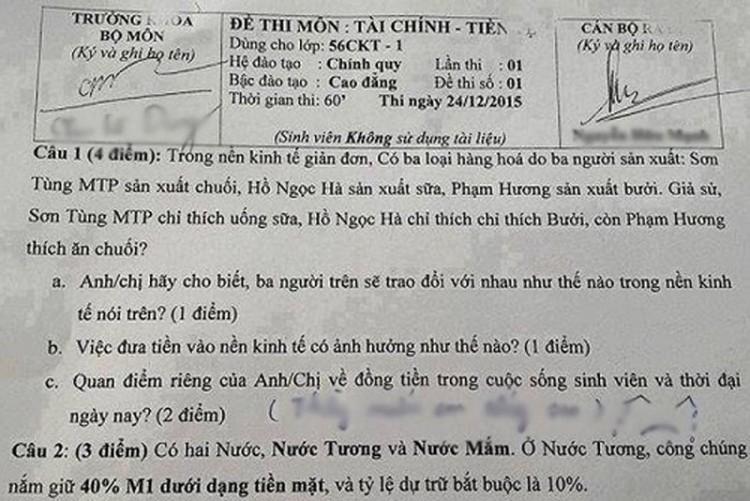 TRƯỞNG KHOA
BỘ MÔN
(Ký và ghi họ tên)
ĐỀ THI MÔN : TÀI CHÍNH - TIỀN
Dùng cho lớp: 56CKT - 1
Hệ đào tạo : Chính quy Lần thi : 01
Bậc đào tạo : Cao đẳng Đề thi số : 01
Thời gian thi: 60’ Thi ngày 24/12/2015
(Sinh viên Không sử dụng tài liệu)
CÁN BỘ RA
(Ký và ghi họ tên)
Câu 1 (4 điểm): Trong nền kinh tế giản đơn, Có ba loại hàng hoá do ba người sản xuất: Sơn
Tùng MTP sản xuất chuối, Hồ Ngọc Hà sản xuất sữa, Phạm Hương sản xuất bưởi. Giả sử,
Sơn Tùng MTP chỉ thích uống sữa, Hồ Ngọc Hà chỉ thích chỉ thích Bưởi, còn Phạm Hương
thích ăn chuối?
a. Anh/chị hãy cho biết, ba người trên sẽ trao đổi với nhau như thế nào trong nền kinh
tế nói trên? (1 điểm)
b. Việc đưa tiền vào nền kinh tế có ảnh hưởng như thế nào? (1 điểm)
c. Quan điểm riêng của Anh/Chị về đồng tiền trong cuộc sống sinh viên và thời đại
ngày nay? (2 điểm)
Câu 2: (3 điểm) Có hai Nước, Nước Tương và Nước Mắm. Ở Nước Tương, công chúng
nắm giữ 40% M1 dưới dạng tiền mặt, và tỷ lệ dự trữ bắt buộc là 10%.